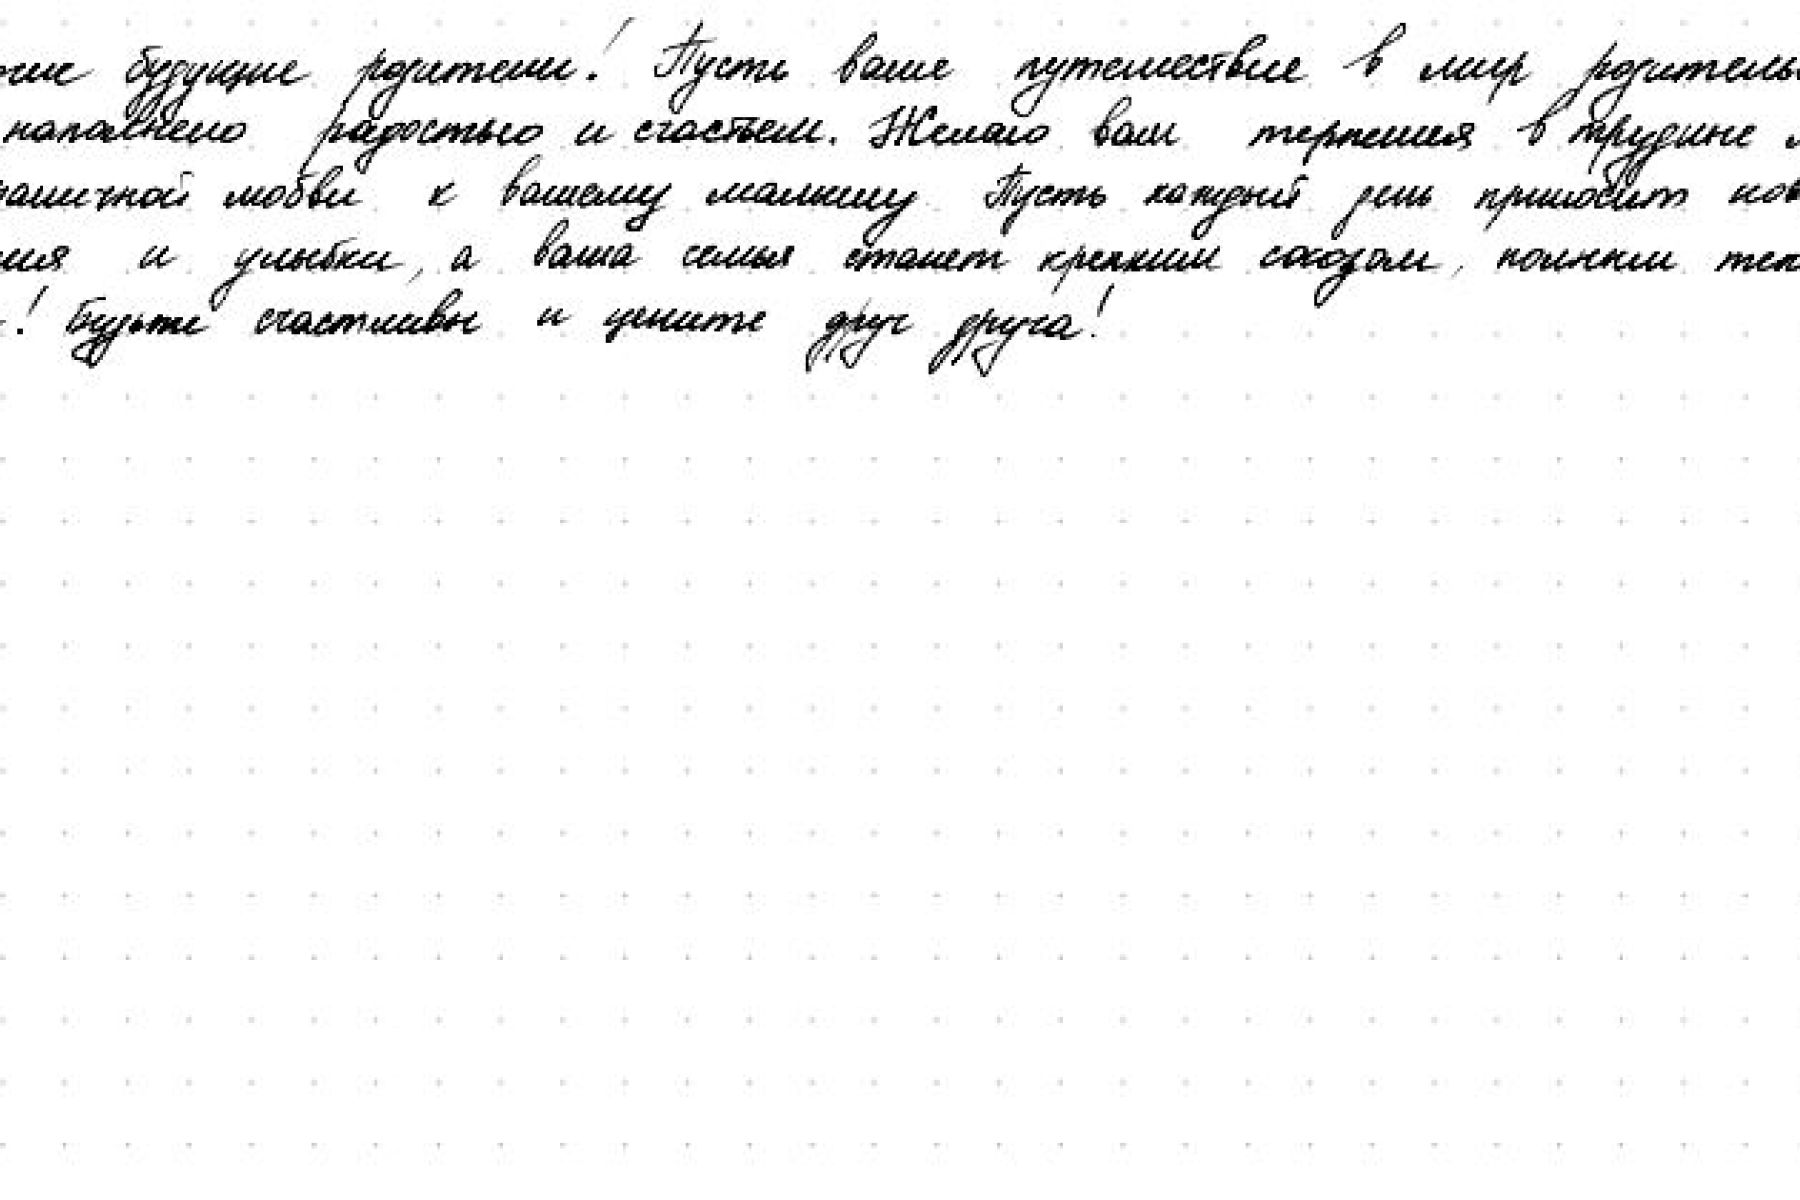 будущие родители! Пусть ваше путешествие в мир родитель
наполнено радостью и счастьем. Желаю вам терпения в трудные
любви к вашему малышу Пусть каждый день приносит нов
ия и улыбки, а ваша семья станет крепким союзом, полным теп
! Будьте счастливы и цените друг друга!